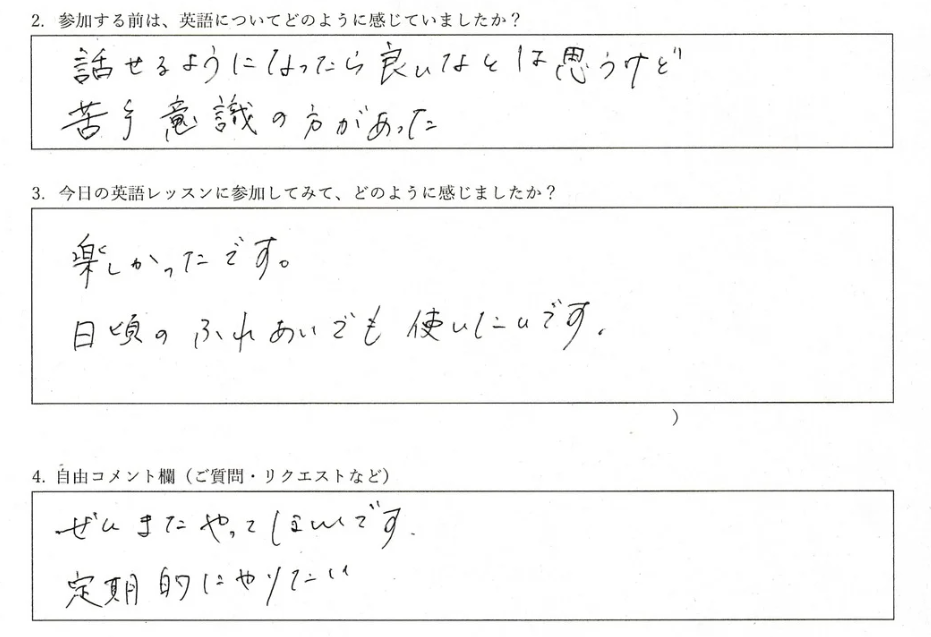 2. 参加する前は、英語についてどのように感じていましたか？
話せるようになったら良いなとは思うけど
苦手意識の方があった
3. 今日の英語レッスンに参加してみて、どのように感じましたか？
楽しかったです。
日頃のふれあいでも使いたいです。
）
4. 自由コメント欄（ご質問・リクエストなど）
ぜひまたやってほしいです.
定期的にやりたい